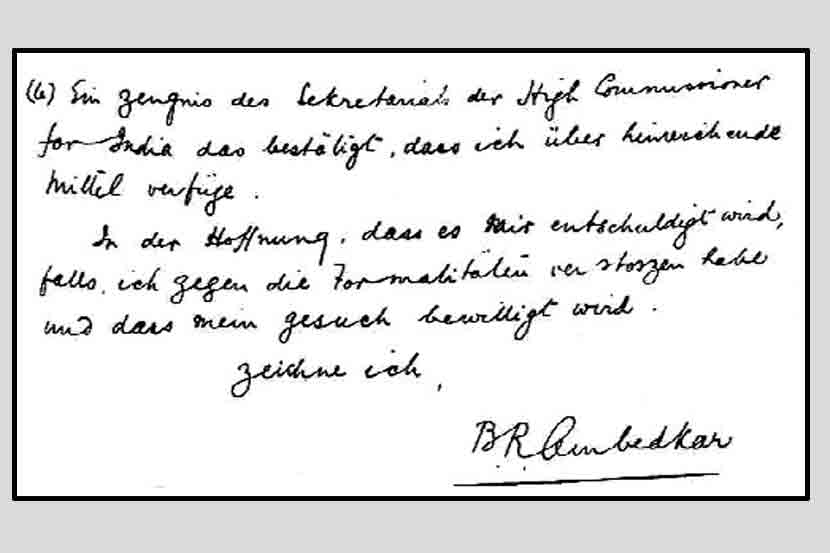 (6) Ein Zeugnis des Sekretariats der High Commissioner
for India das bestätigt, dass ich über hinreichende
Mittel verfüge.
In der Hoffnung, dass es mir entschuldigt wird,
falls, ich gegen die Formalitäten verstoszen habe
und dass mein gesuch bewilligt wird.
zeichne ich,
B R Ambedkar